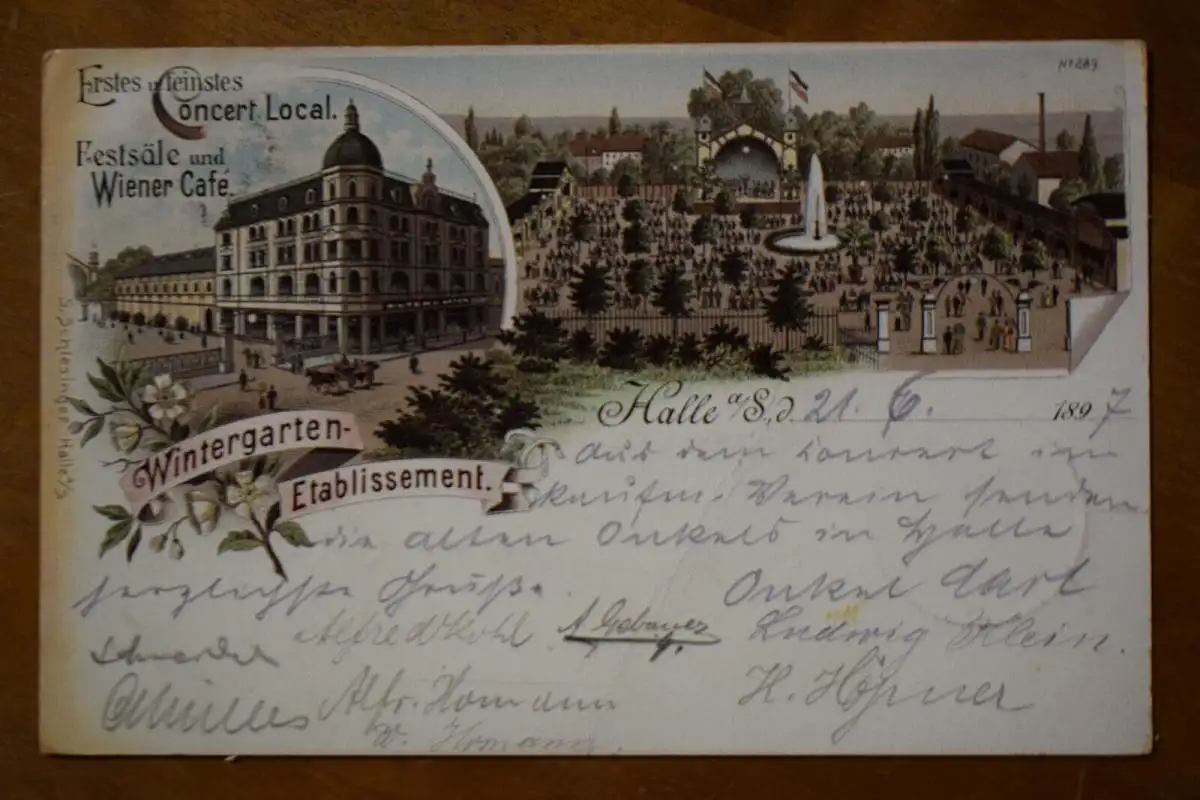 Erstes u. feinstes
Concert Local.
Festsäle und
Wiener Café.
No 289
S. Schlesinger, Halle a/S
Wintergarten-
Etablissement.
Halle a/S., d. 21. 6. 1897
Aus dem Concert im
kaufm. Verein senden
die alten Onkels in Halle
herzlichste Grüße
Onkel Carl
Alfred Kohl
A. Gebauer
Ludwig Klein.
Schneider
H. Höpner
Alfr. Homann
W. Homann.